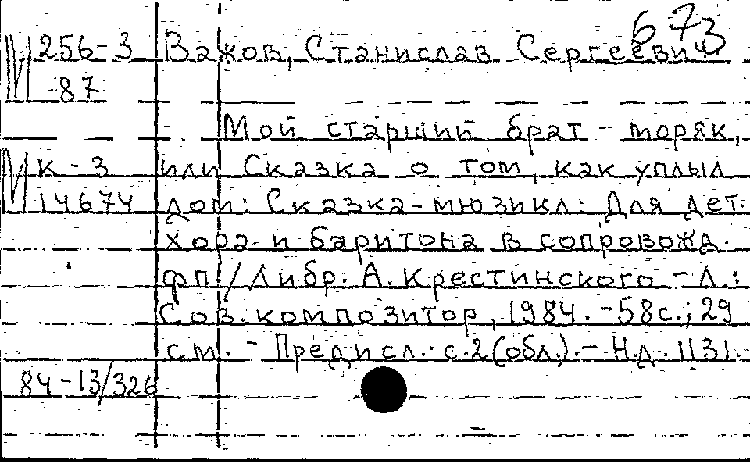 673
М 256-3 Важов, Станислав Сергеевич
87
Мой старший брат - моряк,
М К-3 или Сказка о том, как уплыл
14674 дом: Сказка-мюзикл: Для дет.
хора и баритона в сопровожд.
фп. / Либр. А. Крестинского - Л.:
Сов. композитор, 1984. - 58с.; 29
см. - Предисл.: с.2 (обл.). - Н.д. 1131.
84-13/326